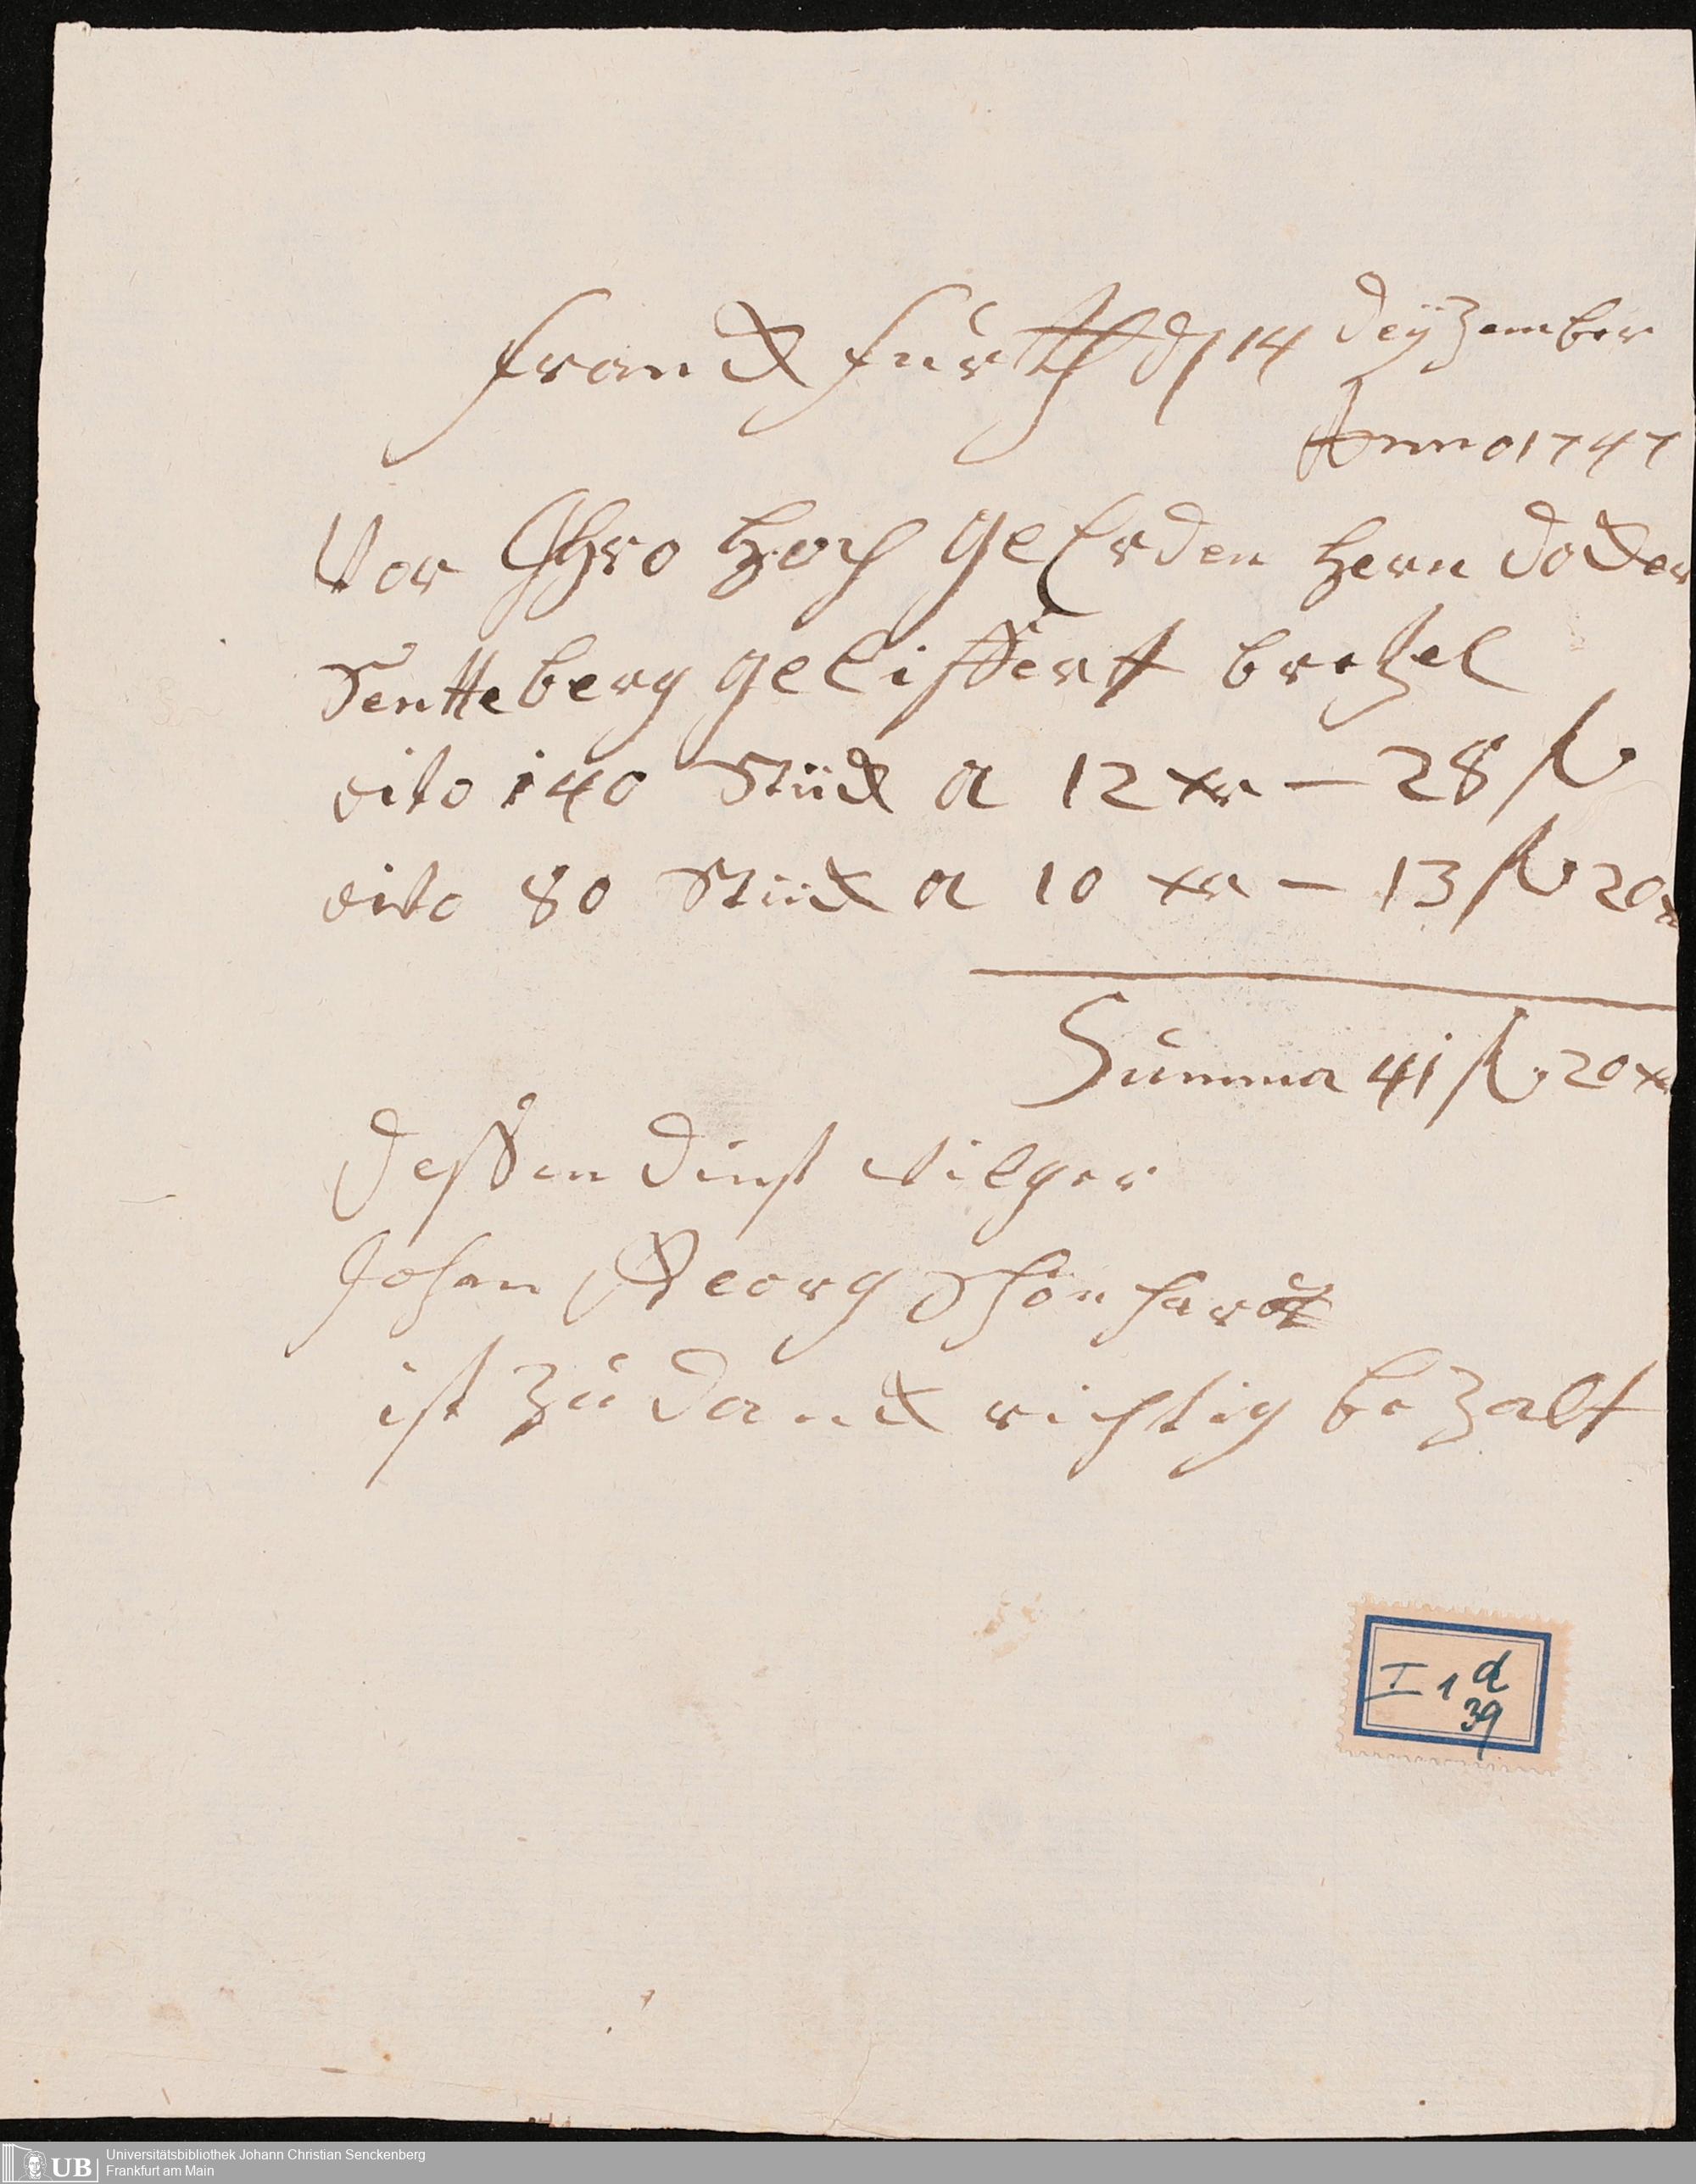 Franckfurth d 14 deÿzember
Anno 1747
Vor Ihro Hoch geErden Hern docter
Sentteberg geliffert bretzel
dito 140 Stück a 12 xr – 28 fl
dito 80 Stück a 10 xr – 13 fl 20 xr
Summa 41 fl. 20 xr
dessen dinst wilger
Johan Georg Schönhardt
ist zu danck richtig bezalt
I 1 d
39
UB Universitätsbibliothek Johann Christian Senckenberg
Frankfurt am Main